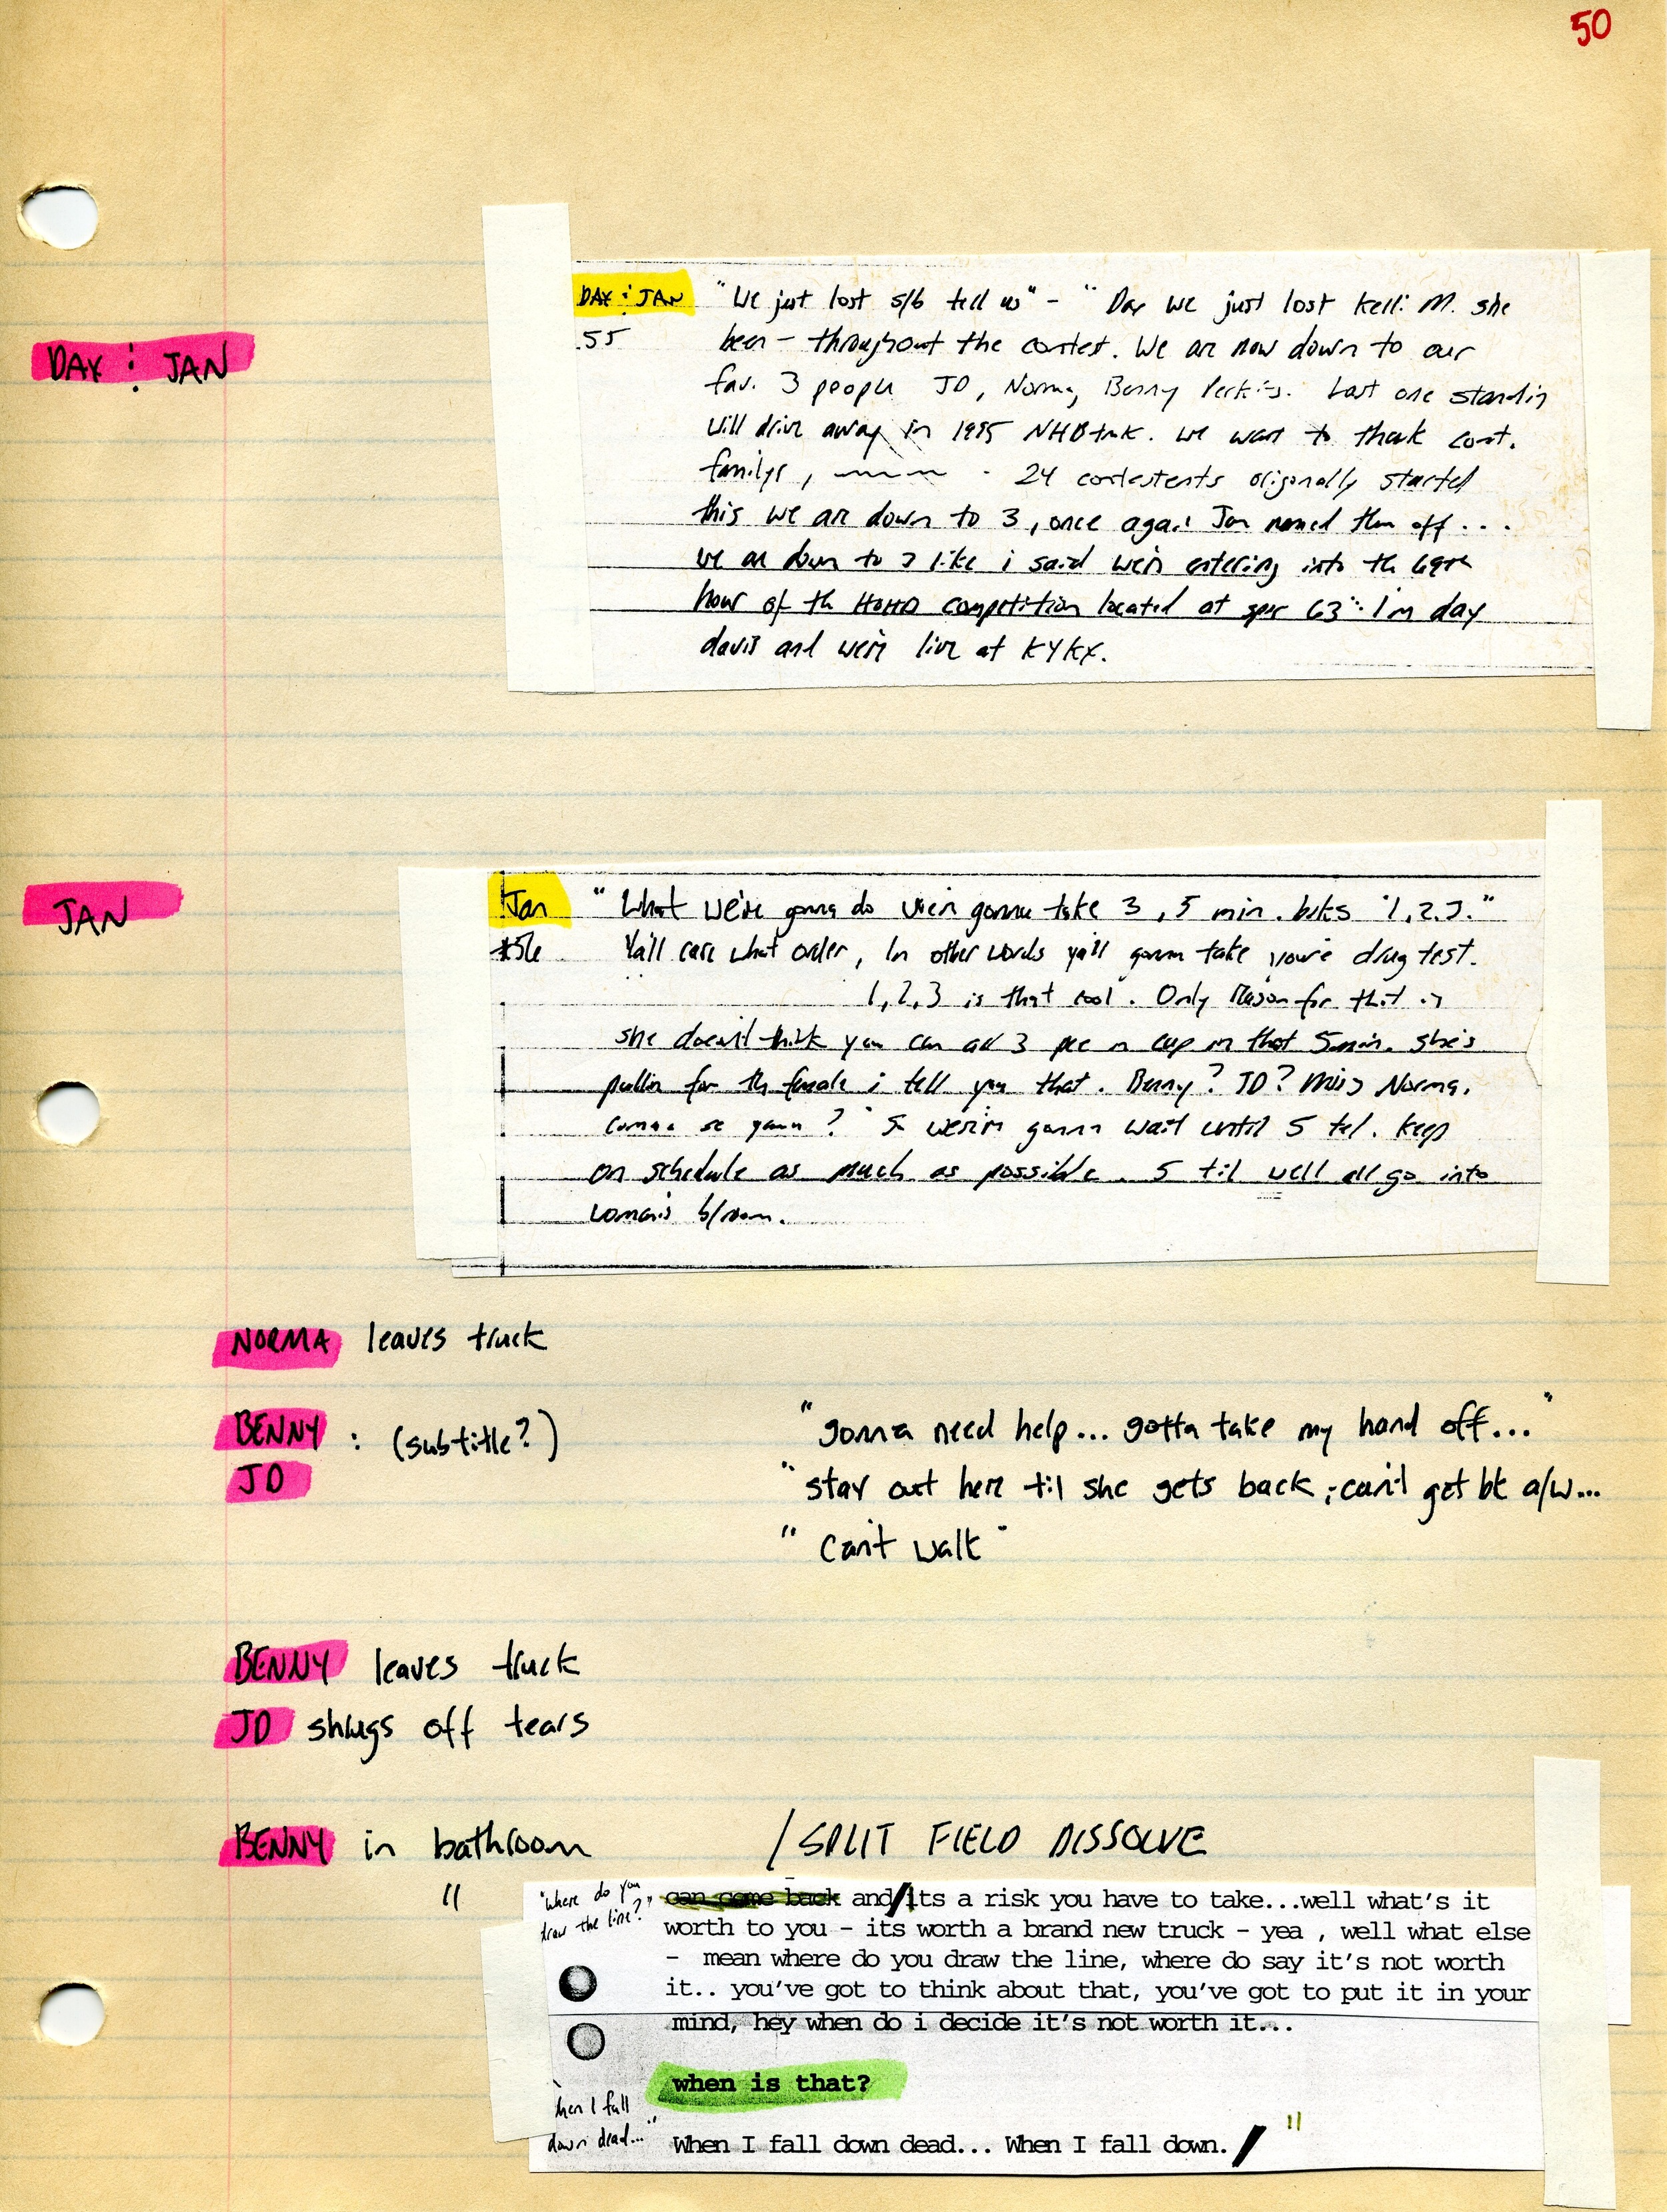 50
DAY : JAN
DAY : JAN "We just lost s/b tell us" - "Day we just lost Kelli M. she
.55 been - throughout the contest. We are now down to our
fav. 3 people JD, Norma, Benny Perkins. Last one standin
will drive away in 1995 NHB truk. We want to thank cont.
familys, 24 contestents origonally started
this we are down to 3, once again Jan named them off...
we are down to 3 like i said we're entering into th 69th
hour of th HOHO competition located at 63" I'm day
davis and we're live at KYKX.
JAN
Jan "What we're gonna do we're gonna take 3, 5 min. breks "1,2,3."
#56 Ya'll care what order, In other words ya'll gonna take you're drug test.
1,2,3 is that cool". Only reason for that is
she doesn't think you can all 3 pee n cup in that 5min. she's
pullin for th female i tell you that. Benny? JD? Miss Norma,
? So we're gonna wait until 5 tel. Keep
on schedule as much as possible. 5 til we'll all go into
woman's b/room.
NORMA leaves truck
BENNY : (subtitle?) "gonna need help... gotta take my hand off..."
JD "stay out here til she gets back, i can't get bk a/w...
"Can't walk"
BENNY leaves truck
JD shrugs off tears
BENNY in bathroom /SPLIT FIELD DISSOLVE
"
"Where do you
draw the line?"
can come back and/its a risk you have to take...well what's it
worth to you - its worth a brand new truck - yea , well what else
- mean where do you draw the line, where do say it's not worth
it.. you've got to think about that, you've got to put it in your
mind, hey when do i decide it's not worth it...
when is that?
hen I fall
down dead..."
When I fall down dead... When I fall down. / "